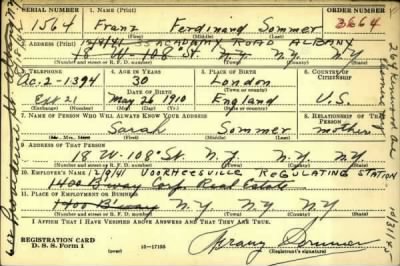 SERIAL NUMBER
ORDER NUMBER
1564
1. NAME (Print)
Franz Ferdinand Sommer
3664
(First) (Middle) (Last)
2. ADDRESS (Print)
12/9/41 ACADAMY ROAD ALBANY
18 W. 108th St. N.Y. N.Y.
(Number and street or R. F. D. number) (Town) (County) (State)
3. TELEPHONE
4. AGE IN YEARS
5. PLACE OF BIRTH
6. COUNTRY OF CITIZENSHIP
Ac. 2-1394
30
London
DATE OF BIRTH
(Town or county)
Ext 21
May 26 1910
England
U.S.
(Exchange) (Number)
(Mo.) (Day) (Yr.)
(State or country)
7. NAME OF PERSON WHO WILL ALWAYS KNOW YOUR ADDRESS
8. RELATIONSHIP OF THAT PERSON
Sarah Sommer mother
(Mr., Mrs., Miss) (First) (Middle) (Last)
9. ADDRESS OF THAT PERSON
18 W. 108th St. N.Y. N.Y. N.Y.
(Number and street or R. F. D. number) (Town) (County) (State)
10. EMPLOYER'S NAME 12/9/41 VOORHEESVILLE REGULATING STATION
1400 B'way Corp. Real Estate
11. PLACE OF EMPLOYMENT OR BUSINESS
1400 B'way N.Y. N.Y. N.Y.
(Number and street or R. F. D. number) (Town) (County) (State)
I AFFIRM THAT I HAVE VERIFIED ABOVE ANSWERS AND THAT THEY ARE TRUE.
REGISTRATION CARD
D. S. S. Form 1
16-17105
Franz Sommer
(Registrant's signature)
10/31/45